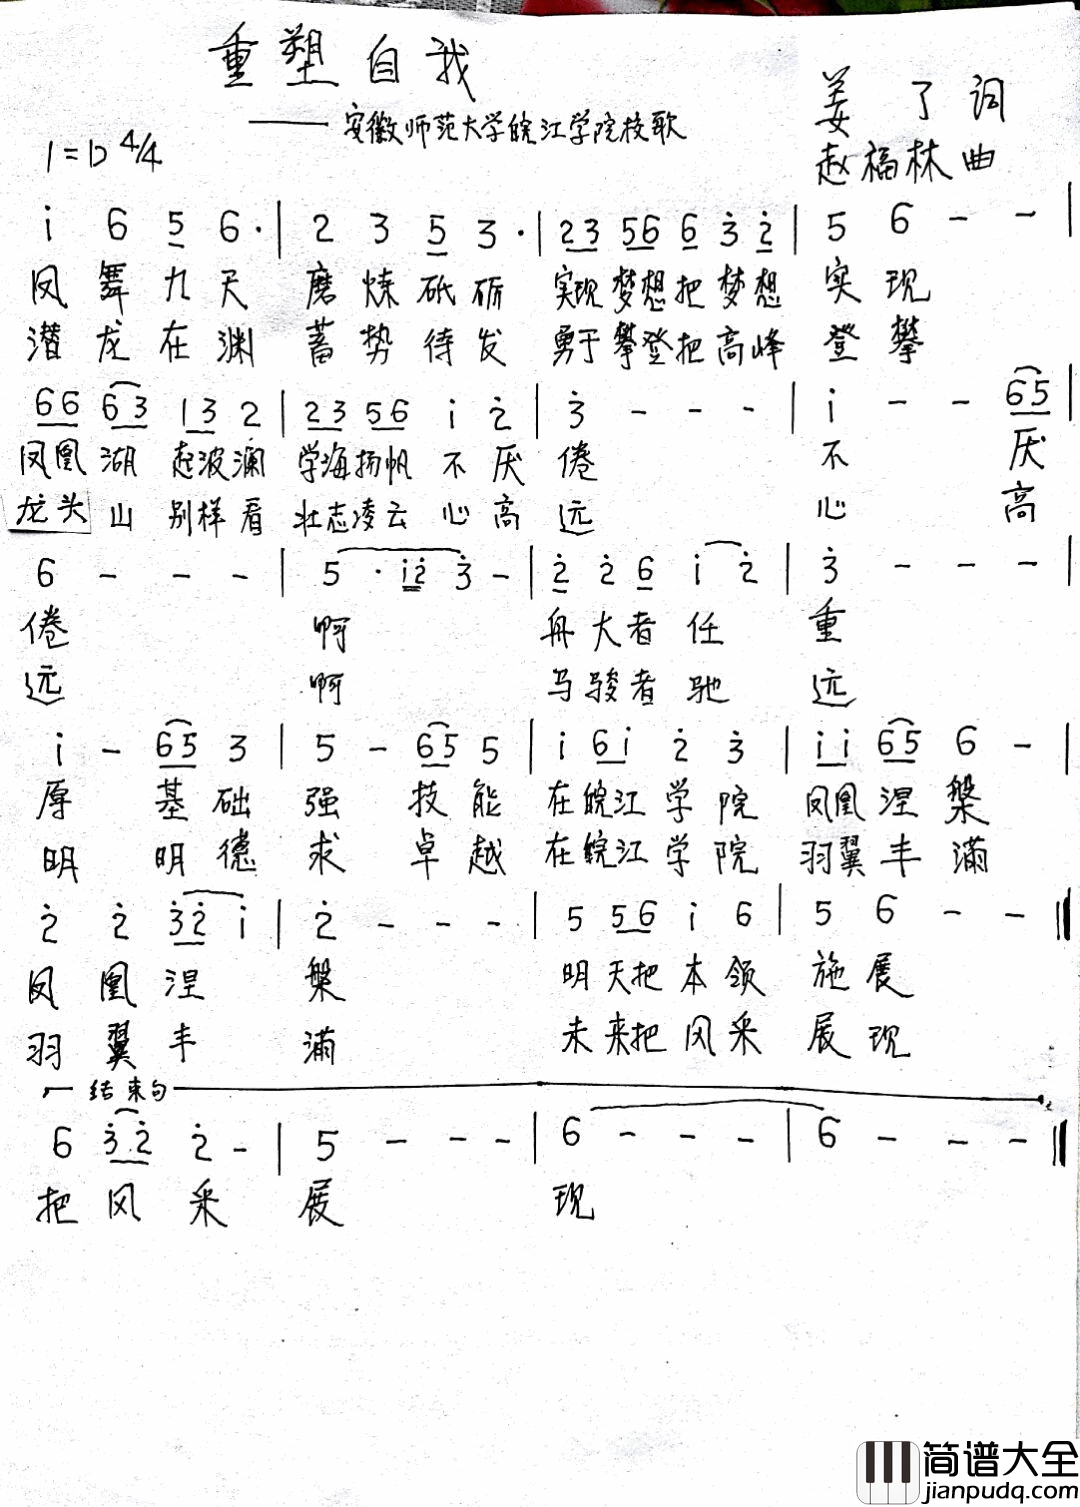 重塑自我
——安徽师范大学皖江学院校歌
姜了词
1=D 4/4
赵福林曲
i 6 5 6· | 2 3 5 3· | 23 56 6 3 2 | 5 6 - - |
凤舞九天 磨炼砥砺 实现梦想把梦想 实现
潜龙在渊 蓄势待发 勇于攀登把高峰 登攀
66 63 13 2 | 23 56 i 2 | 3 - - - | i - - 65 |
凤凰湖起波澜 学海扬帆不厌倦 不厌
龙头山别样看 壮志凌云心高远 心高
6 - - - | 5 · i2 3 - | 2 2 6 i 2 | 3 - - - |
倦 啊 舟大者任 重
远 啊 马骏者驰 远
i - 65 3 | 5 - 65 5 | i 6i 2 3 | ii 65 6 - |
厚基础 强技能 在皖江学院 凤凰涅槃
明明德 求卓越 在皖江学院 羽翼丰满
2 2 32 i | 2 - - - | 5 56 i 6 | 5 6 - - ||
凤凰涅 槃 明天把本领 施展
羽翼丰 满 未来把风采 展现
结束句
6 3·2 2 - | 5 - - - | 6 - - - | 6 - - - ||
把风采 展 现
简谱大全
jianpudq.com